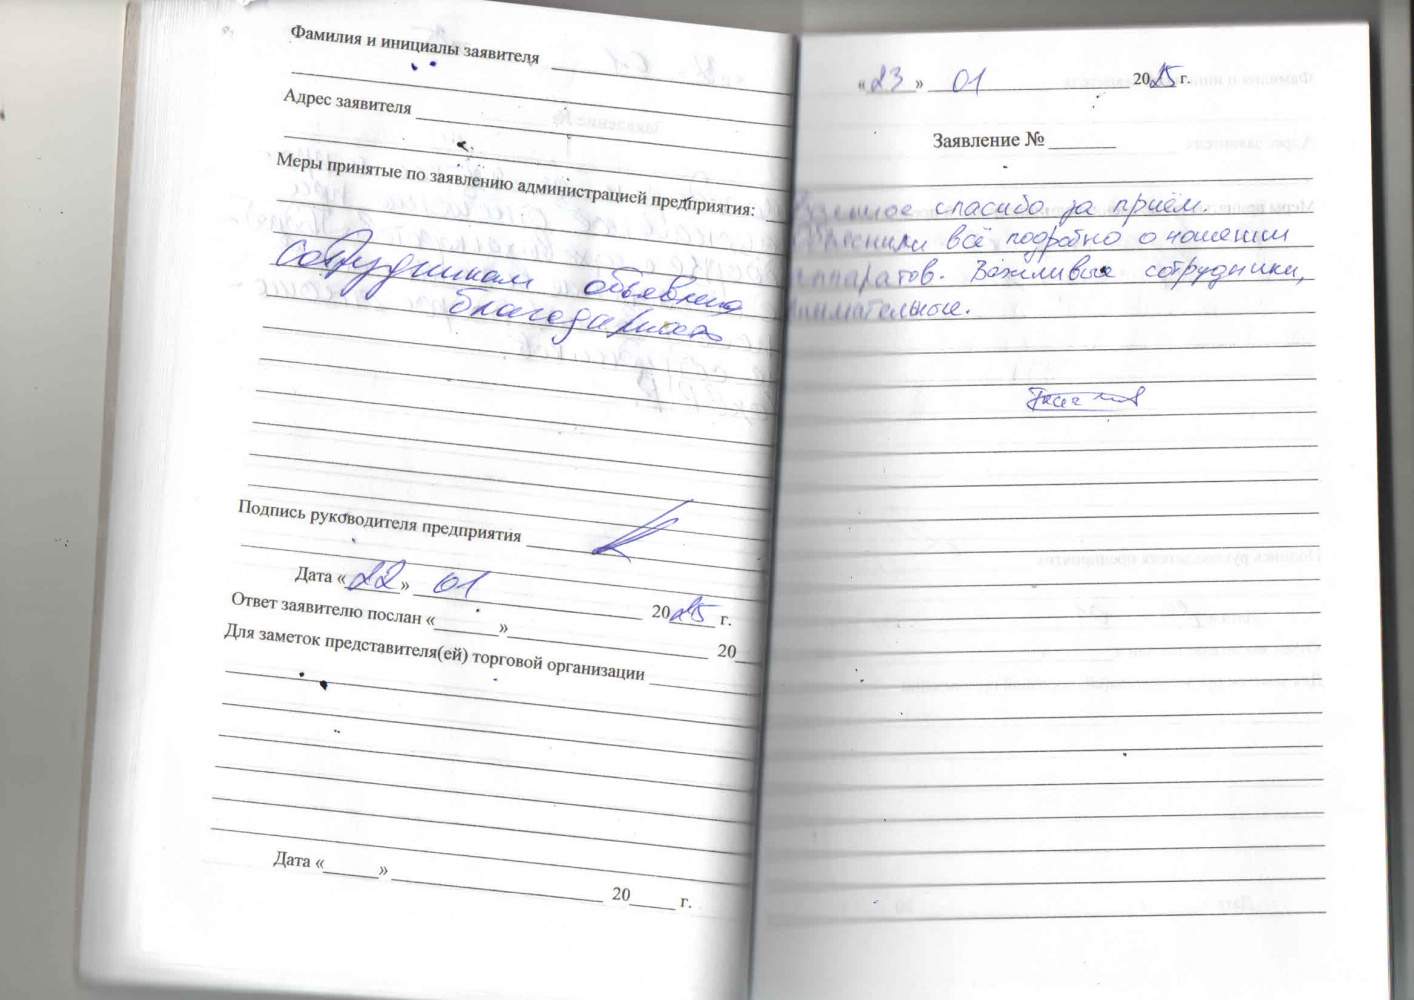 Фамилия и инициалы заявителя
Адрес заявителя
Меры принятые по заявлению администрацией предприятия:
Сотрудникам объявлена
благодарность
Подпись руководителя предприятия
Дата «22» 01 2025 г.
Ответ заявителю послан «___» ___ 20
Для заметок представителя(ей) торговой организации
Дата «___» ___ 20___ г.
«23» 01 2025 г.
Заявление № ___
спасибо за приём.
всё подробно о ношении
аппаратов. Вежливые сотрудники,
внимательные.